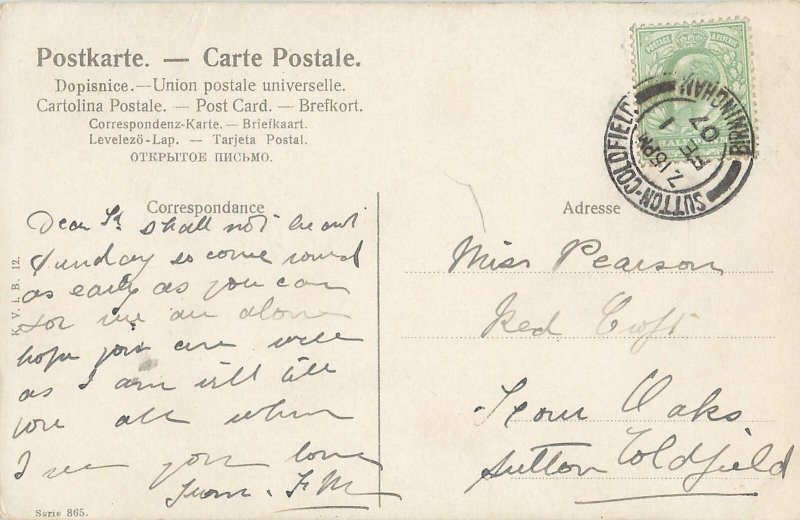 Postkarte. — Carte Postale.
Dopisnice.—Union postale universelle.
Cartolina Postale. — Post Card. — Brefkort.
Correspondenz-Karte. — Briefkaart.
Levelező-Lap. — Tarjeta Postal.
ОТКРЫТОЕ ПИСЬМО.
POSTAGE & REVENUE
SUTTON-COLDFIELD
BIRMINGHAM
7.15PM
FE 1
07
Correspondance
Dear shall not be out
Sunday so come round
as early as you can
for we are alone
hope you are well
as I am will tell
you all when
I see you love
from. F.M
K. V. i. B. 12.
Serie 865.
Adresse
Miss Pearson
Red Croft
Four Oaks
Sutton Coldfield